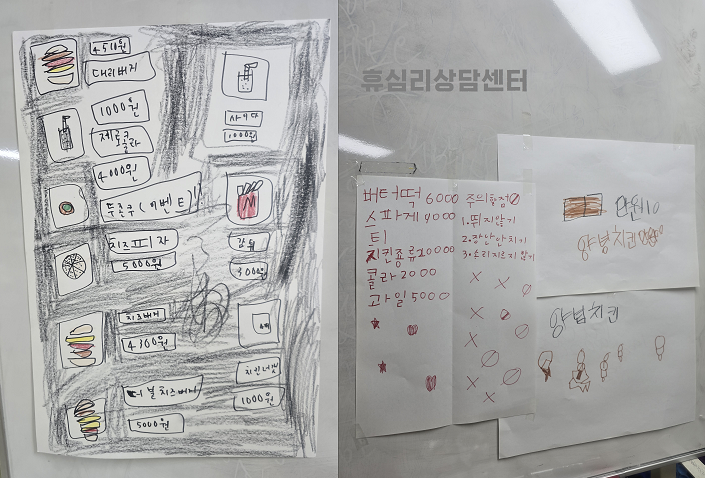 4510원
대리버거
1000원
제로콜라
4000원
두존쿠(이벤트)!!
치즈피자
5000원
치즈버거
4300원
더블치즈버거
5000원
사이다
1000원
감튀
300원
치킨너겟
1000원
휴심리상담센터
버터떡 6000
스파게 4000
티
치킨종류 20000
콜라 2000
과일 5000
주의할점
1. 뛰지않기
2. 장난안치기
3. 소리지르지 않기
만원10
양념치킨
양념치킨